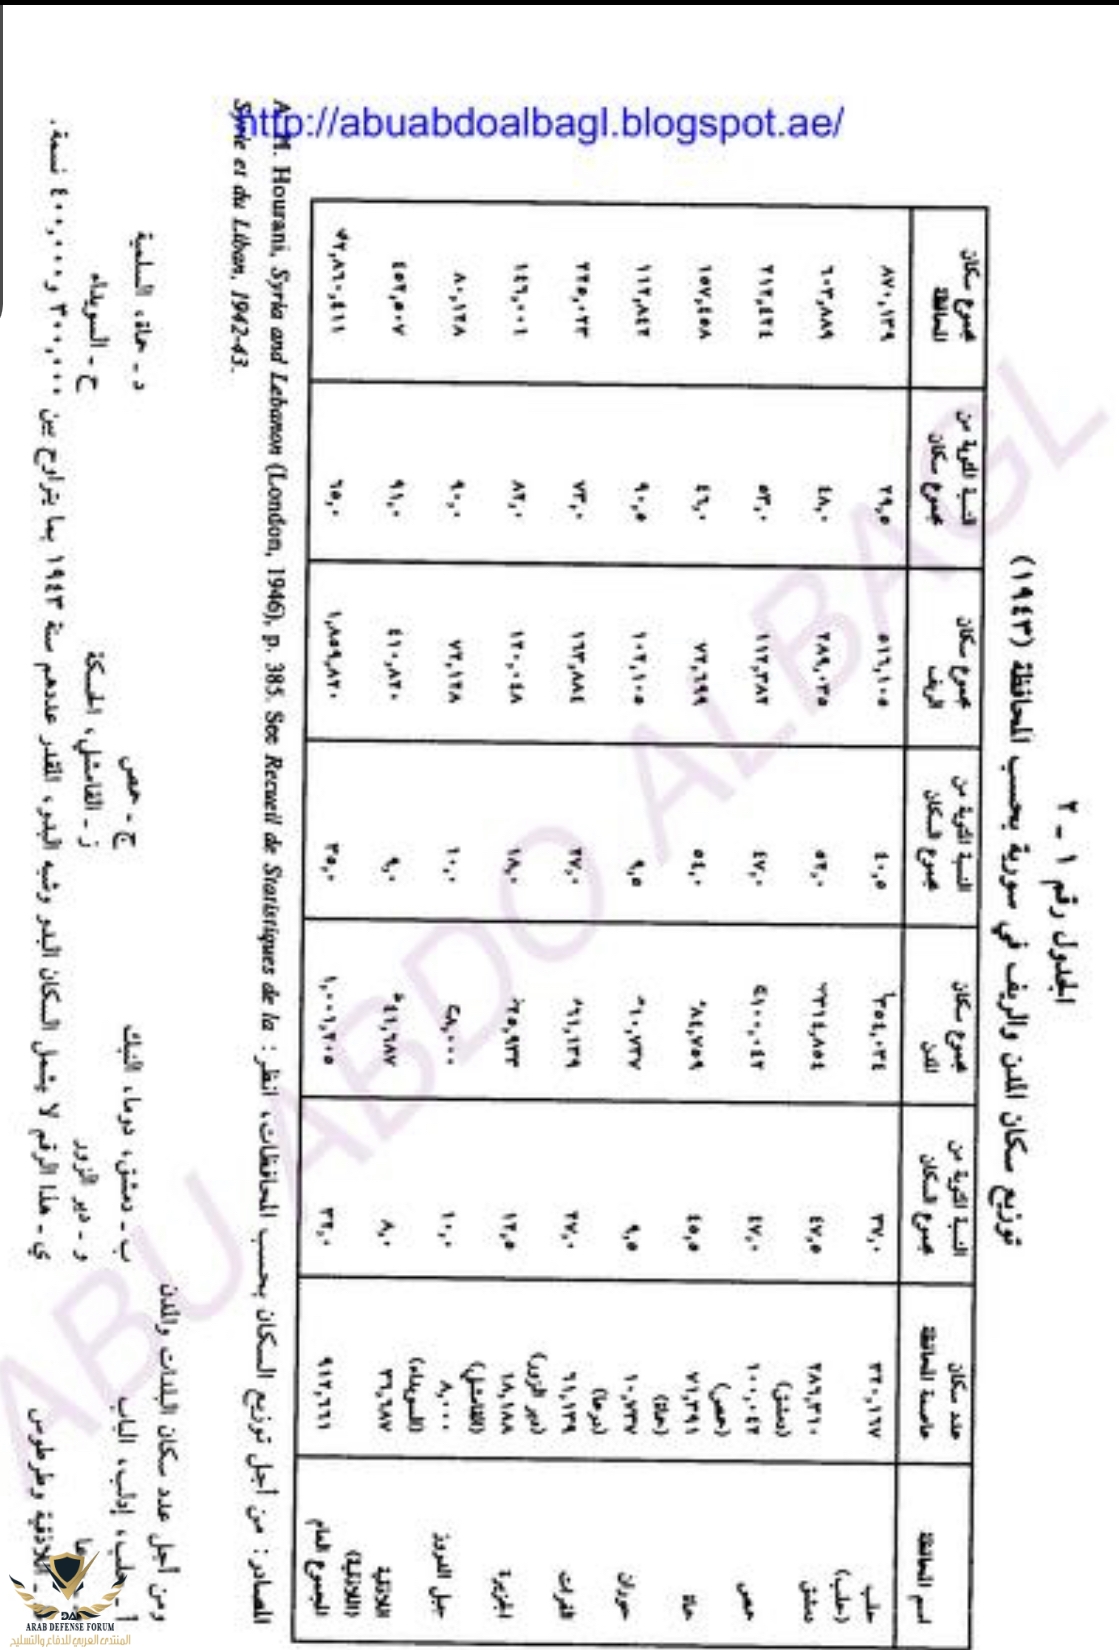 http://abuabdoalbagl.blogspot.ae/
الجدول رقم ١ - ٢
توزيع سكان المدن والريف في سورية بحسب المحافظة (١٩٤٣)
اسم المحافظة | عدد سكان عاصمة المحافظة | النسبة المئوية من مجموع السكان | مجموع سكان المدن | النسبة المئوية من مجموع السكان | مجموع سكان الريف | النسبة المئوية من مجموع سكان | مجموع سكان المحافظة
حلب | ٣٢٠,١٦٧ (حلب) | ٣٧,٠ | ٣٥٤,٠٣٤ أ | ٤٠,٥ | ٥١٦,١٠٥ | ٢٩,٥ | ٨٧٠,١٣٩
دمشق | ٢٨٦,٣١٠ (دمشق) | ٤٧,٥ | ٣١٤,٨٥٤ ب | ٥٢,٠ | ٢٨٩,٠٣٥ | ٤٨,٠ | ٦٠٣,٨٨٩
حمص | ١٠٠,٠٤٢ (حمص) | ٤٧,٠ | ١٠٠,٠٤٢ ج | ٤٧,٠ | ١١٢,٣٨٢ | ٥٣,٠ | ٢١٢,٤٢٤
حماة | ٧١,٣٩١ (حماة) | ٤٥,٥ | ٨٤,٧٥٩ د | ٥٤,٠ | ٧٢,٦٩٩ | ٤٦,٠ | ١٥٧,٤٥٨
حوران | ١٠,٧٣٧ (درعا) | ٩,٥ | ١٠,٧٣٧ هـ | ٩,٥ | ١٠٢,١٠٥ | ٩٠,٥ | ١١٢,٨٤٢
الفرات | ٦١,١٣٩ (دير الزور) | ٢٧,٠ | ٦١,١٣٩ و | ٢٧,٠ | ١٦٣,٨٨٤ | ٧٣,٠ | ٢٢٥,٠٢٣
الجزيرة | ١٨,١٨٨ (القامشلي) | ١٢,٥ | ٢٥,٩٣٣ ز | ١٨,٠ | ١٢٠,٠٤٨ | ٨٢,٠ | ١٤٦,٠٠١
جبل الدروز | ٨,٠٠٠ (السويداء) | ١٠,٠ | ٨,٠٠٠ ح | ١٠,٠ | ٧٢,١٢٨ | ٩٠,٠ | ٨٠,١٢٨
اللاذقية | ٣٦,٦٨٧ (اللاذقية) | ٨,٠ | ٤١,٦٨٧ ط | ٩,٠ | ٤١٠,٨٢٠ | ٩١,٠ | ٤٥٢,٥٠٧
المجموع العام | ٩١٢,٦٦١ | ٣٢,٠ | ١,٠٠١,٢٠٥ | ٣٥,٠ | ١,٨٥٩,٨٢٠ | ٦٥,٠ | ٢,٨٦٠,٤١١ ي
المصادر: من أجل توزيع السكان بحسب المحافظات، انظر: A. H. Hourani, Syria and Lebanon (London, 1946), p. 385. See Recueil de Statistiques de la
Syrie et du Liban, 1942-43.
ومن أجل عدد سكان البلدات والمدن
أ - حلب، إدلب، الباب
ب - دمشق، دوما، النبك
ج - حمص
د - حماة، السلمية
و - دير الزور
ز - القامشلي، الحسكة
ح - السويداء
اللاذقية وطرطوس
ي - هذا الرقم لا يشمل السكان البدو وشبه البدو، المقدر عددهم سنة ١٩٤٣ بما يتراوح بين ٣٠٠,٠٠٠ و ٤٠٠,٠٠٠ نسمة.
ABU ABDO ALBAGL
ARAB DEFENSE FORUM
المنتدى العربي للدفاع والتسليح